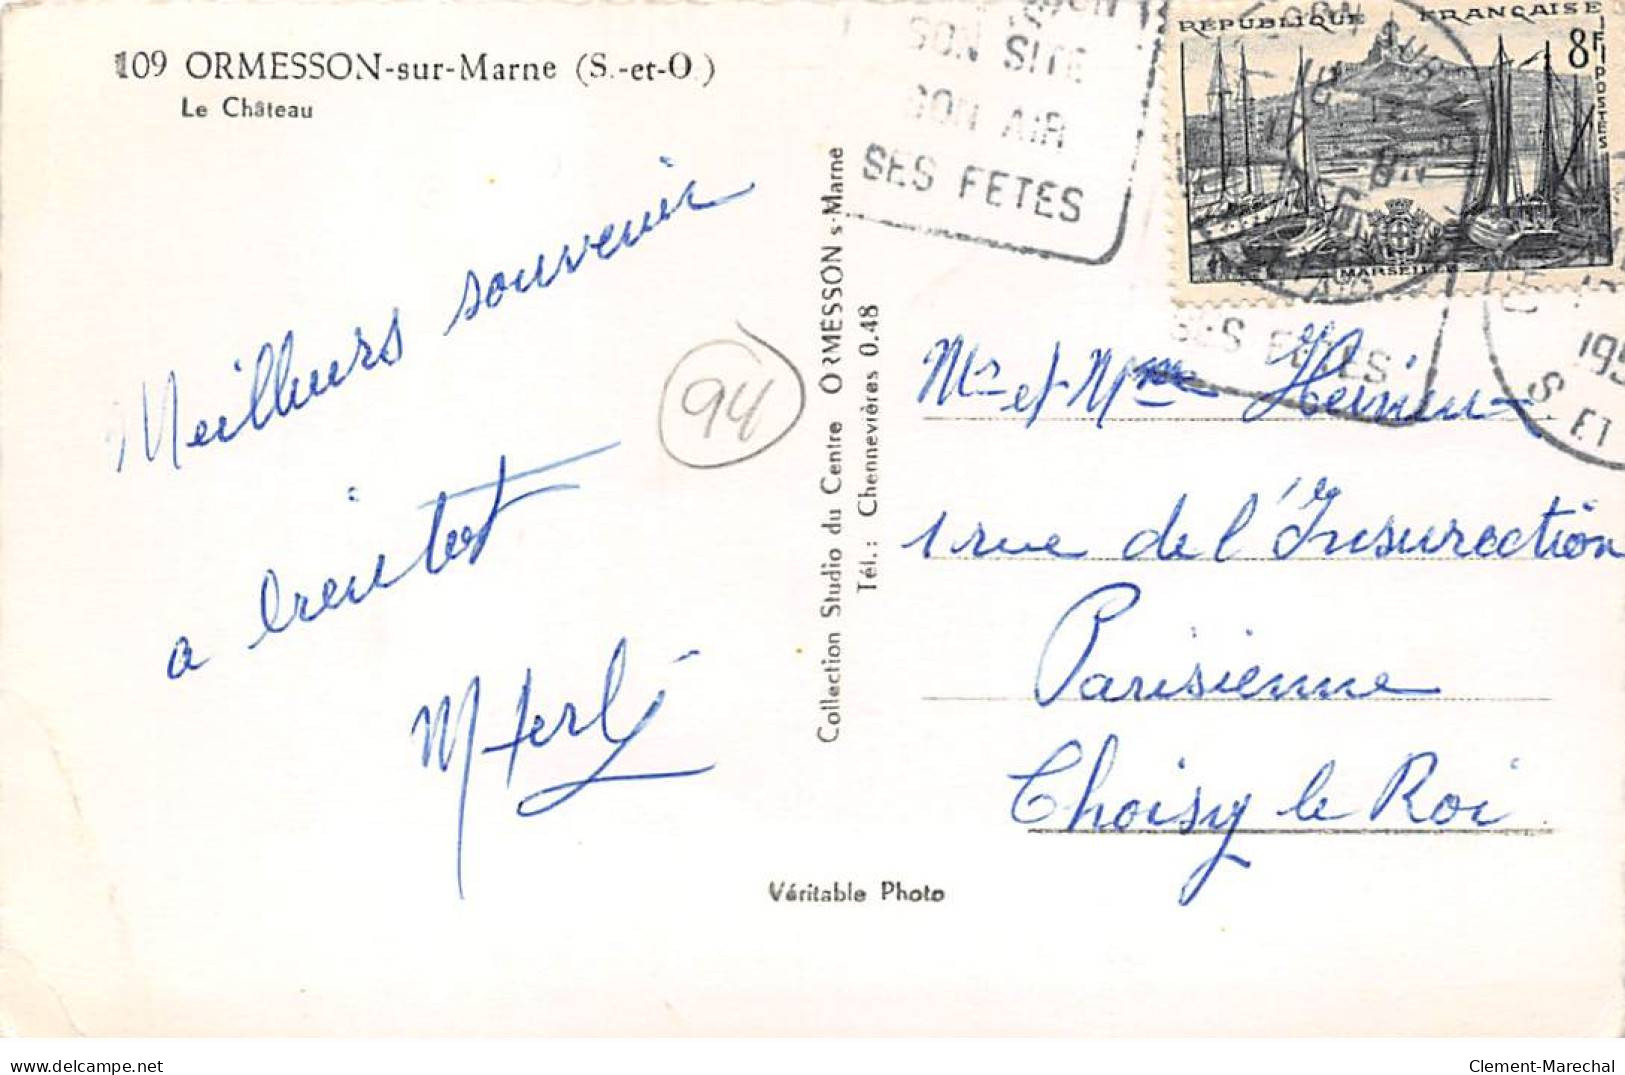 109 ORMESSON-sur-Marne (S.-et-O.)
Le Château
Meilleurs souvenir
a bientot
SON SITE
SON AIR
SES FETES
RÉPUBLIQUE FRANÇAISE
8F
POSTES
MARSEILLE
SES FETES
195
S ET
94
Collection Studio du Centre ORMESSON s-Marne
Tél.: Chennevières 0.48
Mr et Mme
1 rue de l'Insurection
Parisienne
Choisy le Roi
Véritable Photo
delcampe.net
Clement-Marechal